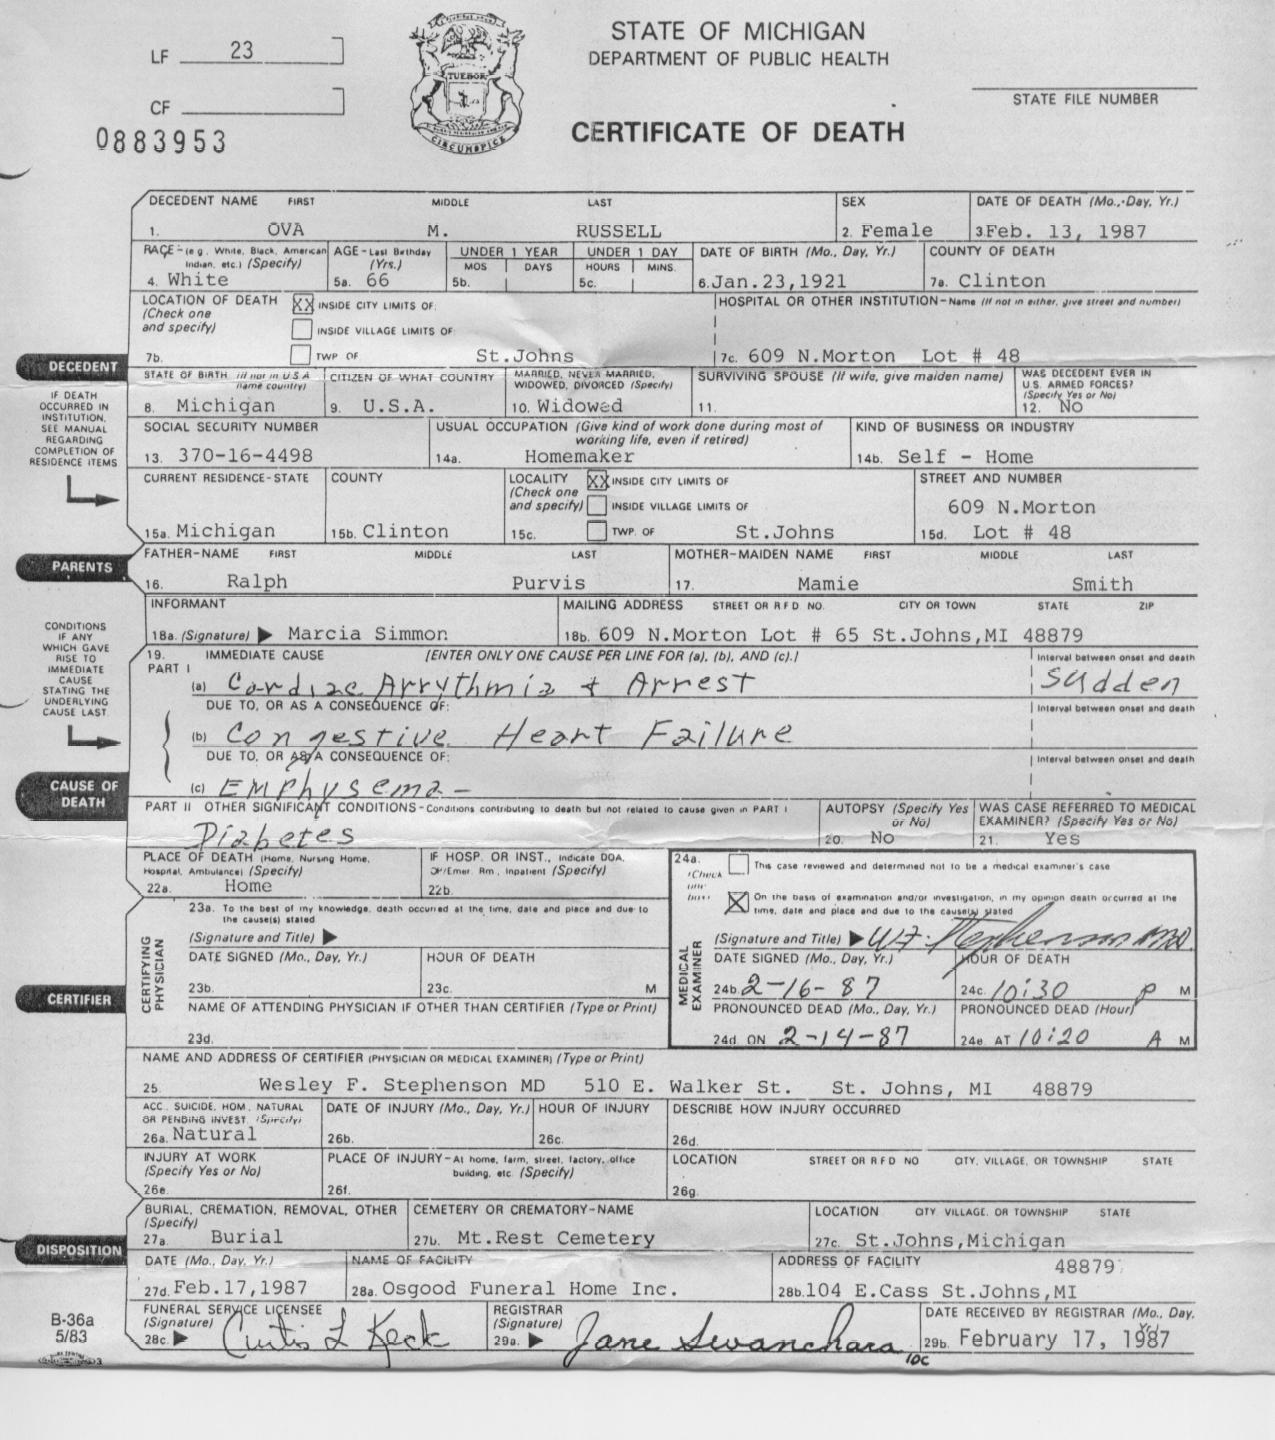 LF 23
CF
0883953
TUEBOR
CIRCUMSPICE
STATE OF MICHIGAN
DEPARTMENT OF PUBLIC HEALTH
CERTIFICATE OF DEATH
STATE FILE NUMBER
DECEDENT NAME FIRST MIDDLE LAST SEX DATE OF DEATH (Mo., Day, Yr.)
1. OVA M. RUSSELL 2. Female 3. Feb. 13, 1987
RACE-(e.g. White, Black, American Indian, etc.) (Specify) AGE-Last Birthday (Yrs.) UNDER 1 YEAR UNDER 1 DAY DATE OF BIRTH (Mo., Day, Yr.) COUNTY OF DEATH
MOS DAYS HOURS MINS.
4. White 5a. 66 5b. 5c. 6. Jan.23,1921 7a. Clinton
LOCATION OF DEATH (Check one and specify) XX INSIDE CITY LIMITS OF: HOSPITAL OR OTHER INSTITUTION-Name (If not in either, give street and number)
INSIDE VILLAGE LIMITS OF:
7b. TWP OF St.Johns 7c. 609 N.Morton Lot # 48
DECEDENT
IF DEATH
OCCURRED IN
INSTITUTION,
SEE MANUAL
REGARDING
COMPLETION OF
RESIDENCE ITEMS
STATE OF BIRTH (If not in U.S.A. name country) CITIZEN OF WHAT COUNTRY MARRIED, NEVER MARRIED, WIDOWED, DIVORCED (Specify) SURVIVING SPOUSE (If wife, give maiden name) WAS DECEDENT EVER IN U.S. ARMED FORCES? (Specify Yes or No)
8. Michigan 9. U.S.A. 10. Widowed 11. 12. No
SOCIAL SECURITY NUMBER USUAL OCCUPATION (Give kind of work done during most of working life, even if retired) KIND OF BUSINESS OR INDUSTRY
13. 370-16-4498 14a. Homemaker 14b. Self - Home
CURRENT RESIDENCE-STATE COUNTY LOCALITY (Check one and specify) XX INSIDE CITY LIMITS OF STREET AND NUMBER
INSIDE VILLAGE LIMITS OF 609 N.Morton
15a. Michigan 15b. Clinton 15c. TWP. OF St.Johns 15d. Lot # 48
PARENTS
FATHER-NAME FIRST MIDDLE LAST MOTHER-MAIDEN NAME FIRST MIDDLE LAST
16. Ralph Purvis 17. Mamie Smith
INFORMANT MAILING ADDRESS STREET OR R.F.D. NO. CITY OR TOWN STATE ZIP
18a. (Signature) Marcia Simmon 18b. 609 N.Morton Lot # 65 St.Johns,MI 48879
CONDITIONS
IF ANY
WHICH GAVE
RISE TO
IMMEDIATE
CAUSE
STATING THE
UNDERLYING
CAUSE LAST
19. IMMEDIATE CAUSE [ENTER ONLY ONE CAUSE PER LINE FOR (a), (b), AND (c).] Interval between onset and death
PART I (a) Cardiac Arrythmia + Arrest Sudden
DUE TO, OR AS A CONSEQUENCE OF: Interval between onset and death
(b) Congestive Heart Failure
DUE TO, OR AS A CONSEQUENCE OF: Interval between onset and death
(c) Emphysema -
CAUSE OF
DEATH
PART II OTHER SIGNIFICANT CONDITIONS-Conditions contributing to death but not related to cause given in PART I AUTOPSY (Specify Yes or No) WAS CASE REFERRED TO MEDICAL EXAMINER? (Specify Yes or No)
Diabetes 20. No 21. Yes
PLACE OF DEATH (Home, Nursing Home, Hospital, Ambulance) (Specify) IF HOSP. OR INST., Indicate DOA, OP/Emer. Rm., Inpatient (Specify)
22a. Home 22b.
24a. (Check one) This case reviewed and determined not to be a medical examiner's case
On the basis of examination and/or investigation, in my opinion death occurred at the time, date and place and due to the cause(s) stated
CERTIFIER
CERTIFYING PHYSICIAN
23a. To the best of my knowledge, death occurred at the time, date and place and due to the cause(s) stated
(Signature and Title)
DATE SIGNED (Mo., Day, Yr.) HOUR OF DEATH
23b. 23c. M
NAME OF ATTENDING PHYSICIAN IF OTHER THAN CERTIFIER (Type or Print)
23d.
MEDICAL EXAMINER
(Signature and Title) W F Stephenson MD
DATE SIGNED (Mo., Day, Yr.) HOUR OF DEATH
24b. 2-16-87 24c. 10:30 P M
PRONOUNCED DEAD (Mo., Day, Yr.) PRONOUNCED DEAD (Hour)
24d. ON 2-14-87 24e. AT 10:20 A M
NAME AND ADDRESS OF CERTIFIER (PHYSICIAN OR MEDICAL EXAMINER) (Type or Print)
25. Wesley F. Stephenson MD 510 E. Walker St. St. Johns, MI 48879
ACC., SUICIDE, HOM., NATURAL OR PENDING INVEST. (Specify) DATE OF INJURY (Mo., Day, Yr.) HOUR OF INJURY DESCRIBE HOW INJURY OCCURRED
26a. Natural 26b. 26c. 26d.
INJURY AT WORK (Specify Yes or No) PLACE OF INJURY-At home, farm, street, factory, office building, etc. (Specify) LOCATION STREET OR R.F.D. NO CITY, VILLAGE, OR TOWNSHIP STATE
26e. 26f. 26g.
DISPOSITION
BURIAL, CREMATION, REMOVAL, OTHER (Specify) CEMETERY OR CREMATORY-NAME LOCATION CITY, VILLAGE, OR TOWNSHIP STATE
27a. Burial 27b. Mt.Rest Cemetery 27c. St.Johns,Michigan
DATE (Mo., Day, Yr.) NAME OF FACILITY ADDRESS OF FACILITY 48879
27d. Feb.17,1987 28a. Osgood Funeral Home Inc. 28b. 104 E.Cass St.Johns,MI
FUNERAL SERVICE LICENSEE (Signature) REGISTRAR (Signature) DATE RECEIVED BY REGISTRAR (Mo., Day, Yr.)
28c. Curtis L Keck 29a. Jane Swanchara 29b. February 17, 1987
B-36a
5/83